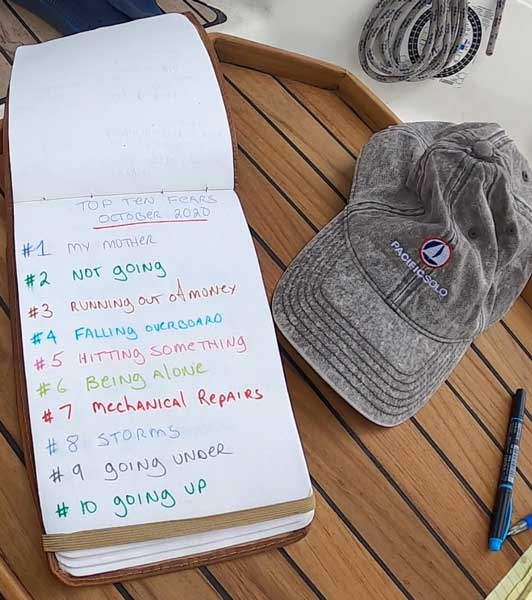 TOP TEN FEARS
OCTOBER 2020
#1 MY MOTHER
#2 NOT going
#3 RUNNING OUT of MONEY
#4 FALLING OVERBOARD
#5 HITTING SOMETHING
#6 BEING ALONE
#7 Mechanical Repairs
#8 STORMS
#9 going UNDER
#10 going UP
PACIFICSOLO